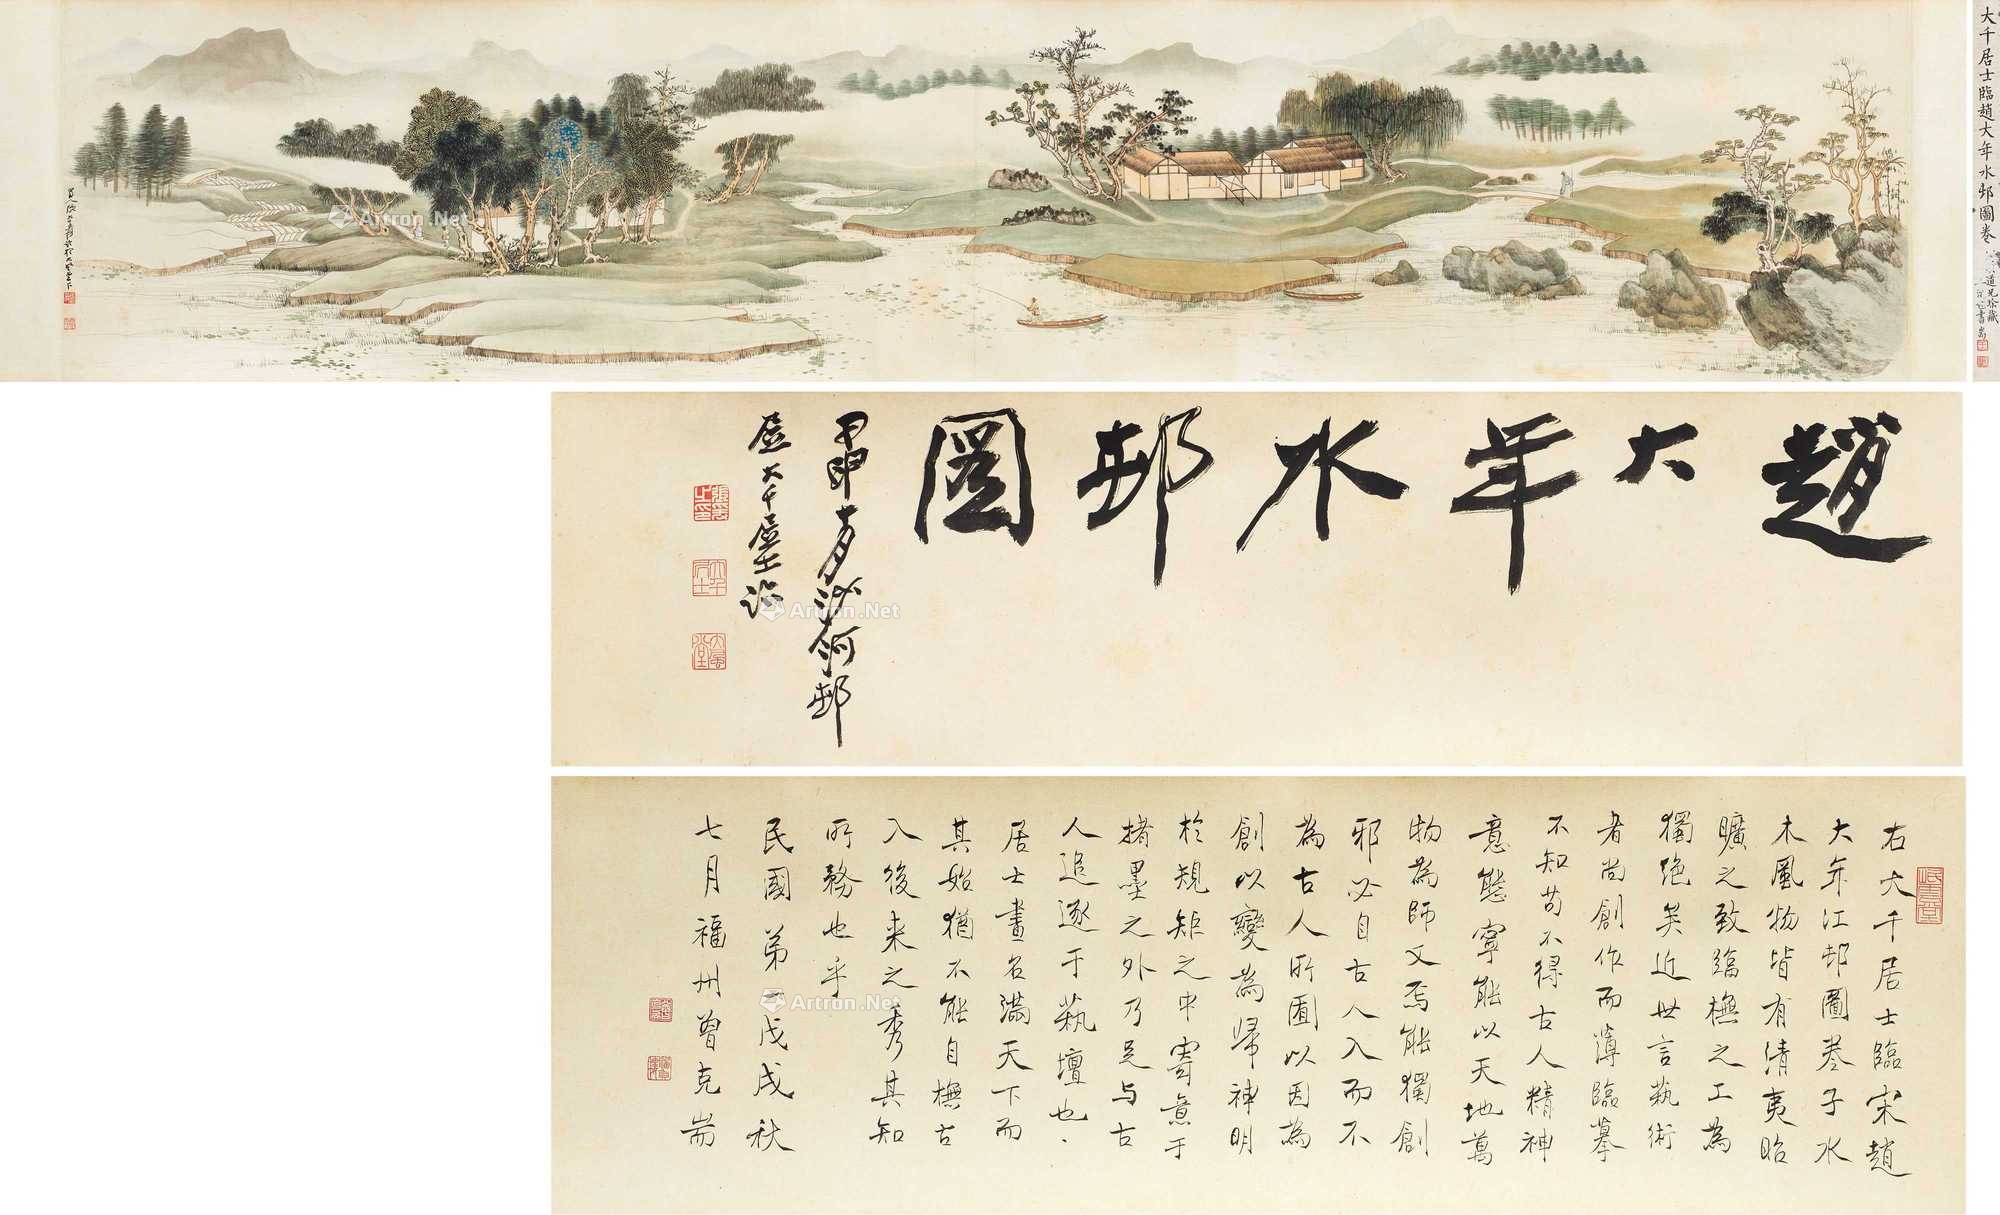 大千居士臨趙大年水邨圖卷
蜀人張大千爰
Artron.Net
Artron.Net
趙大年水邨圖
甲申十二月沙河邨
居大千居士臨
張爰之印
大千居士
大風堂
Artron.Net
Artron.Net
右大千居士臨宋趙
大年江邨圖卷子水
木風物皆有清夷昭
曠之致臨橅之工為
獨絕矣近世言埶術
者尚創作而薄臨摹
不知苟不得古人精神
意態寧能以天地萬
物為師又焉能獨創
邪必自古人入而不
為古人所囿以因為
創以變為歸神明
於規矩之中寄意于
楮墨之外乃足与古
人追逐于蓺壇也、
居士畫名滿天下而
其始猶不能自橅古
入後来之秀其知
所務也乎
民國第一戊戌秋
七月福州曾克耑